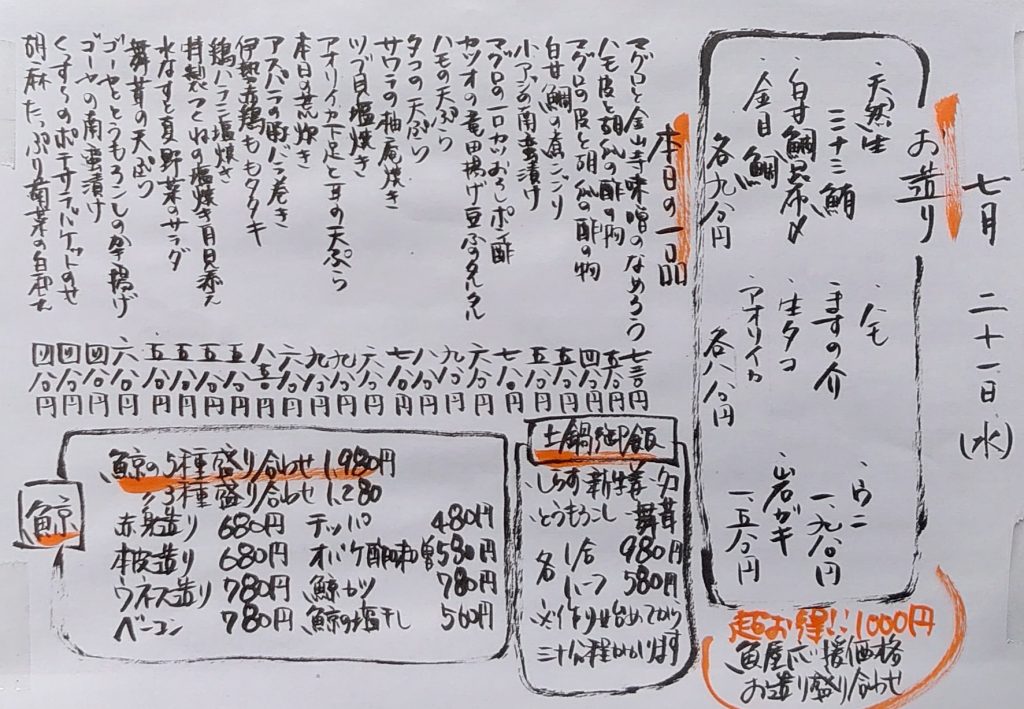 七月 二十一日(水)
お造り
天然生
ミナミ鮪
白甘鯛昆布〆
金目鯛
各九八〇円
ハモ
ますの介
生タコ
アオリイカ
各八八〇円
ウニ
一、九八〇円
岩ガキ
一、五八〇円
超お得!! 1000円
魚屋応援価格
お造り盛り合わせ
本日の一品
マグロと金山寺味噌のなめろう 七三〇円
ハモ皮と胡瓜の酢の物 五八〇円
マグロの皮と胡瓜の酢の物 四八〇円
白甘鯛の煮こごり 五八〇円
小アジの南蛮漬け 五八〇円
マグロの一口カツおろしポン酢 七八〇円
カツオの竜田揚げ豆ふのタルタル 六八〇円
ハモの天ぷら 九八〇円
タコの天ぷら 八八〇円
サワラの柚庵焼き 七八〇円
ツブ貝塩焼き 六八〇円
アオリイカ下足と耳の天ぷら 九八〇円
本日の荒炊き 九八〇円
アスパラの豚バラ巻き 六八〇円
伊勢赤鶏ももタタキ 八五〇円
鶏ハラミ塩焼き 五八〇円
特製つくねの塩焼き月見添え 五八〇円
水なすと夏野菜のサラダ 五八〇円
舞茸の天ぷら 五八〇円
ゴーヤととうもろこしの掻揚げ 六八〇円
ゴーヤの南蛮漬け 四八〇円
くんすらのポテサラバケットのせ 四八〇円
胡麻たっぷり菊菜の白和え 四八〇円
土鍋御飯
しらす 新生姜 タコ
とうもろこし 舞茸
各 1合 980円
ハーフ 580円
※作り始めてから
三十分程かかります
鯨
鯨の5種盛り合わせ 1,980円
〃3種盛り合わせ 1,280
赤身造り 680円 テッパ 480円
本皮造り 680円 オバケ酢味噌 580円
ウネス造り 780円 鯨カツ 780円
ベーコン 780円 鯨の塩干し 500円